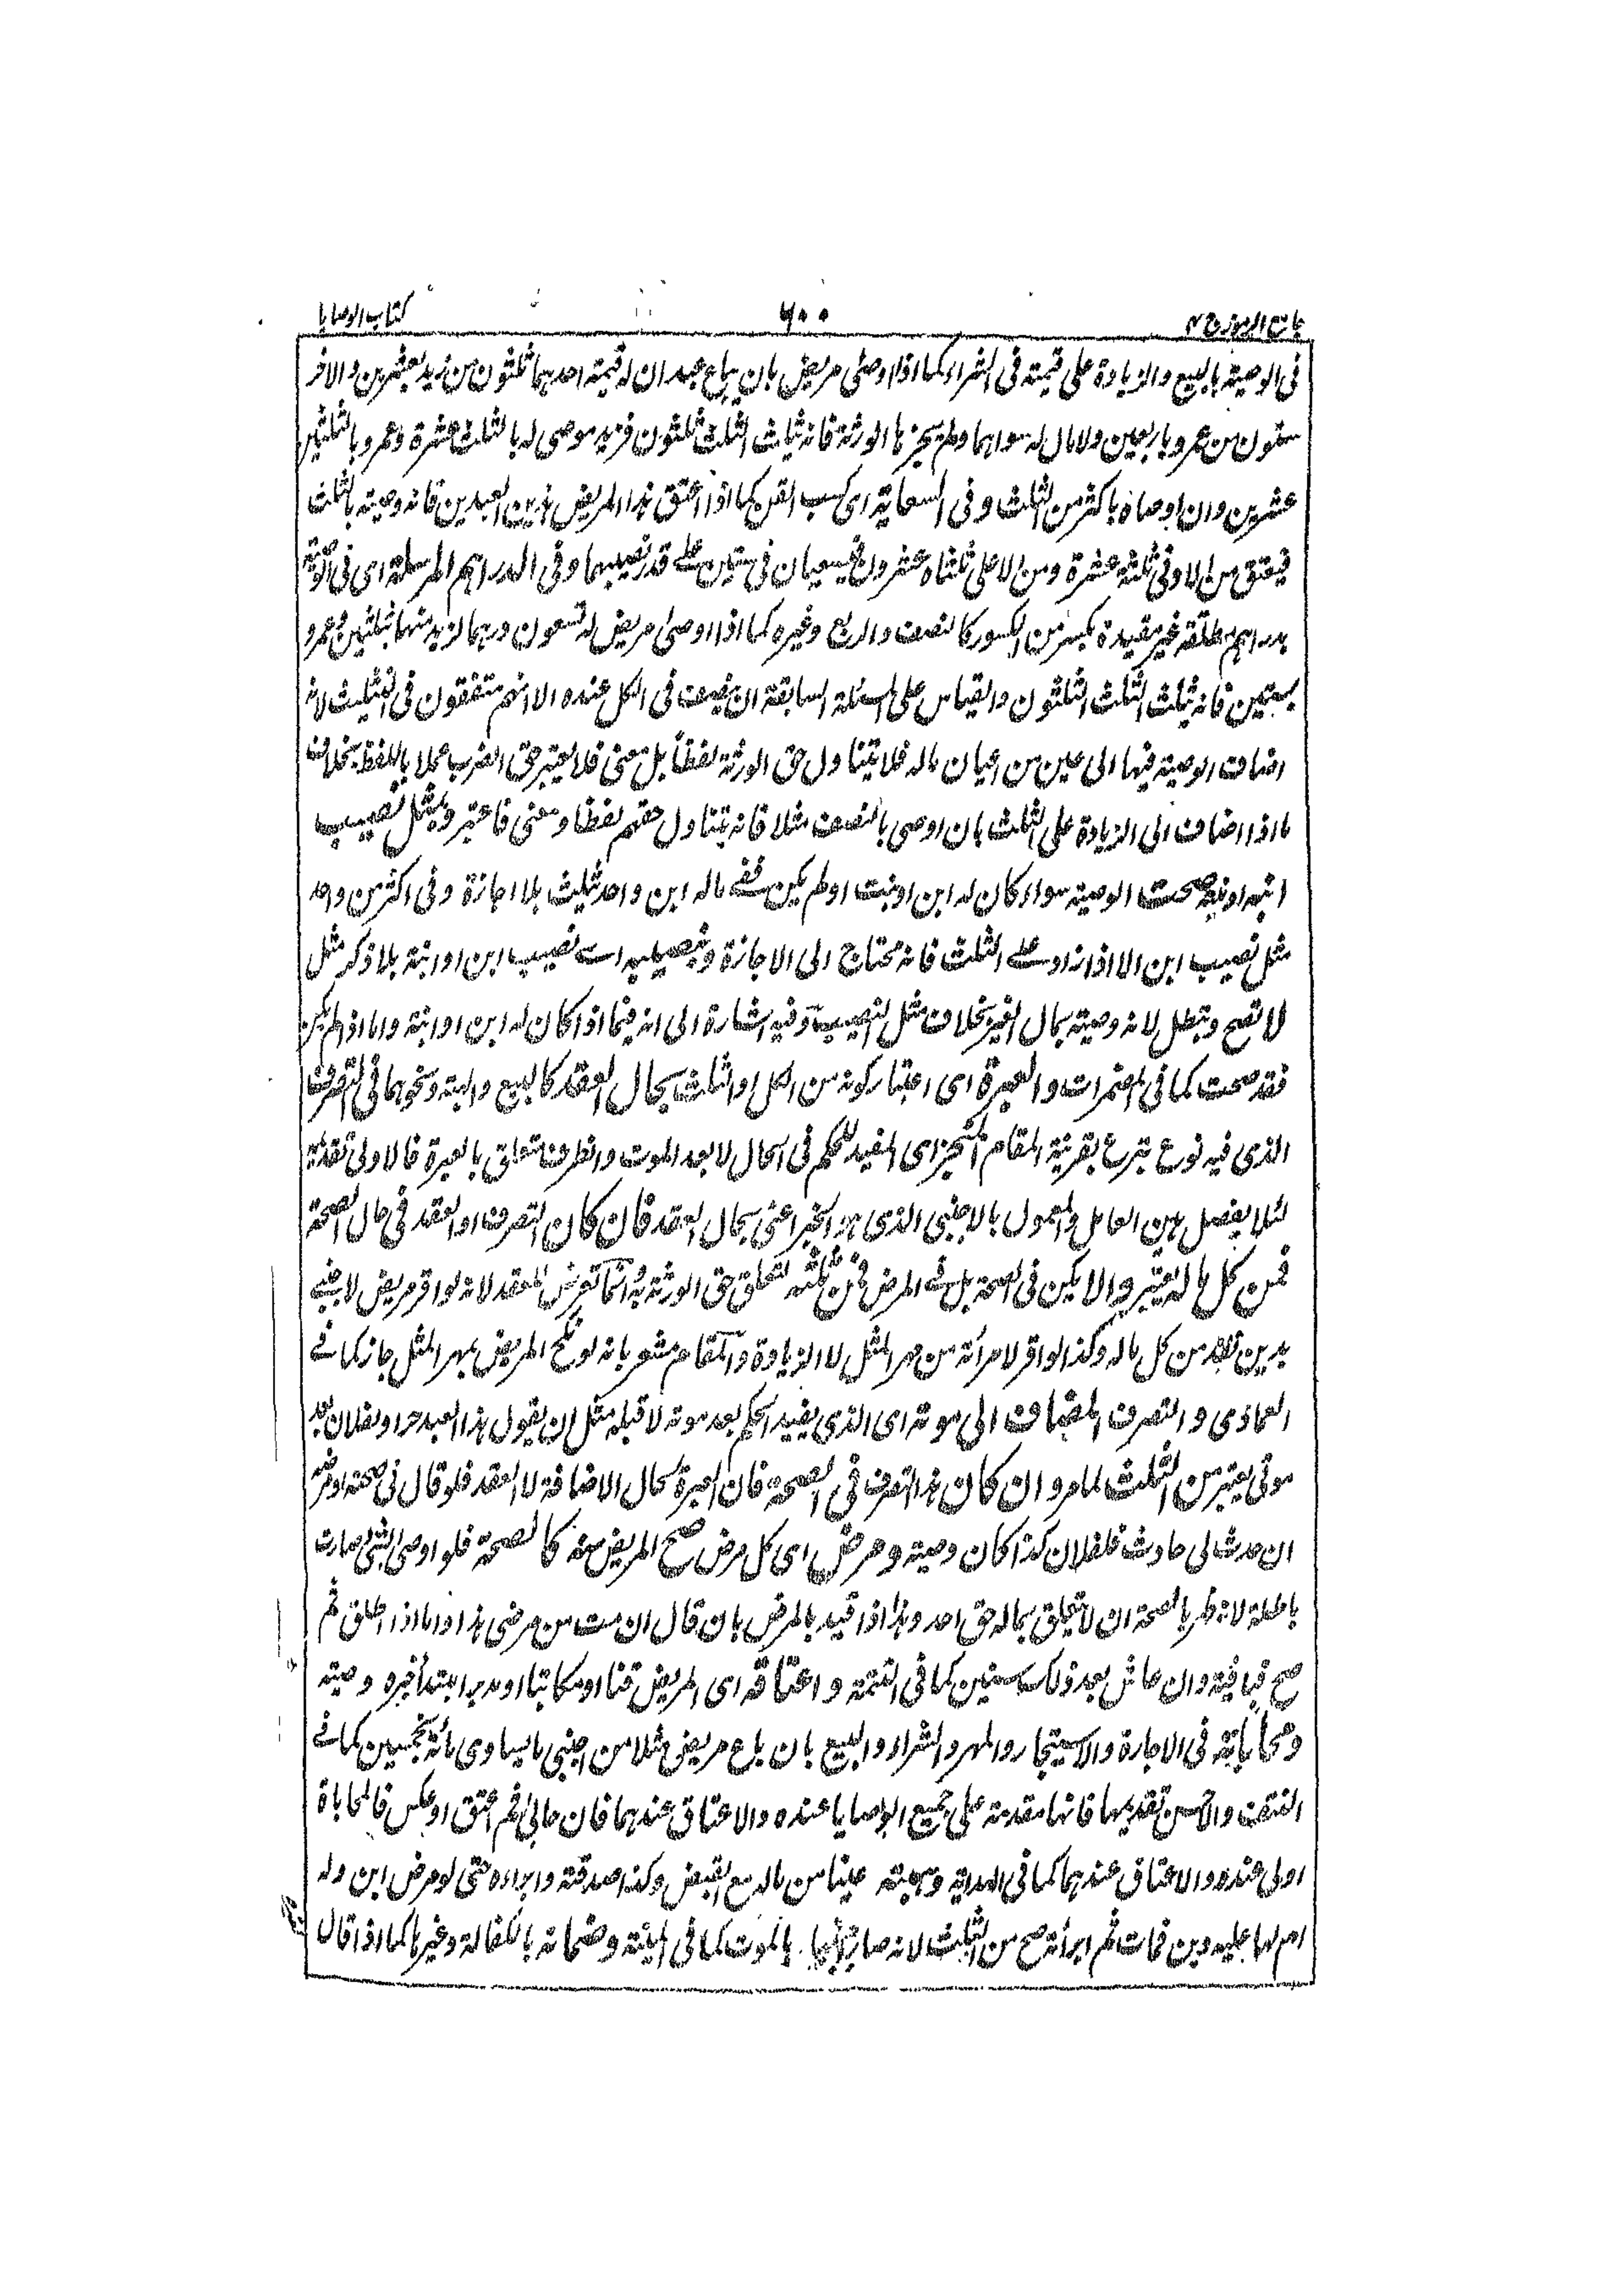 جامع الرموز ج ٢ ٦٠٠ كتاب الوصايا
فى الوصية بالبيع والزيادة على قيمته فى الشراء كما اذا اوصى مريض بان يباع عبدان له قيمة احدهما ثلثون من زيد بعشرين والاخر
ستون من عمرو باربعين ولا مال له سواهما ولم يجزها الورثة فانه يثلث الثلث ثلثون فزيد موصى له بالثلث عشرة وعمرو بالثلثين
عشرين وان اوصاه باكثر من الثلث وفى السعاية اى كسب القن كما اذا اعتق هذا المريض هذين العبدين فانه وصية بالثلث
فيعتق من الاوفى ثلثه عشرة ومن الاعلى ثلثاه عشرون فيسعيان فى ستين على قدر نصيبهما وفى الدراهم المرسلة اى فى الوصية
بدراهم مطلقة غير مقيدة بكسر من الكسور كالنصف والربع وغيره كما اذا اوصى مريض له تسعون درهما لزيد منها بثلثين وعمرو
بستين فانه يثلث الثلث الثلثون والقياس على المسئلة السابقة ان ينصف فى الكل عنده الا انهم متفقون فى التثليث لانه
اضاف الوصية فيها الى عين من اعيان ماله فلا يتناول حق الورثة لفظا بل معنى فلا يعتبر حق الضرب عملا باللفظ بخلاف
ما اذا اضاف الى الزيادة على الثلث بان اوصى بالنصف مثلا فانه يتناول حقهم لفظا ومعنى فاعتبر وبمثل نصيب
ابنه او بنته صحت الوصية سواء كان له ابن او بنت او لم يكن ففى ماله ابن واحد ثلث بلا اجازة وفى اكثر من واحد
مثل نصيب ابن الا اذا زاد على الثلث فانه محتاج الى الاجازة وبنصيبه اى نصيب ابن او ابنة بلا ذكر مثل
لا تصح وتبطل لانه وصية بمال الغير بخلاف مثل النصيب وفيه اشارة الى انه فيما اذا كان له ابن او ابنة واما اذا لم يكن
فقد صحت كما فى المضمرات والعبرة اى اعتبار كونه من الكل او الثلث بحال العقد كالبيع والهبة ونحوهما فى التصرف
الذى فيه نوع تبرع بقرينة المقام المنجز اى المفيد للحكم فى الحال لا بعد الموت والظرف متعلق بالعبرة فالاولى تقديمه
لئلا يفصل بين العامل والمعمول بالاجنبى الذى هو الخبر اعنى بحال العقد فان كان التصرف او العقد فى حال الصحة
فمن كل ماله يعتبر والا يكن فى الصحة بل فى المرض فمن ثلثه لتعلق حق الورثة به انما تعرض للعقد لانه لو اقر مريض لاجنبى
بدين نفذ من كل ماله وكذا لو اقر لامرأته من مهر المثل لا الزيادة والمقام مشعر بانه لو نكح المريض بمهر المثل جاز كما فى
العمادى والتصرف المضاف الى موته اى الذى يفيد الحكم بعد موته لا قبله مثل ان يقول هذا العبد حر او لفلان بعد
موتى يعتبر من الثلث لما مر وان كان هذا التصرف فى الصحة فان العبرة لحال الاضافة لا العقد فلو قال فى صحته او مرضه
ان حدث لى حادث فلفلان كذا كان وصية ومرض اى كل مرض صح المريض منه كالصحة فلو اوصى بشئ صارت
باطلة لانه ظهر بالصحة ان لا تعلق بماله حق احد وهذا اذا قيد بالمرض بان قال ان مت من مرضى هذا واما اذا اطلق ثم
صح فباقية وان عاش بعد ذلك سنين كما فى التتمة واعتاقه اى المريض قنا او مكاتبا او مدبرا مبتدأ خبره وصية
ومحاباته فى الاجارة والاستيجار والمهر والشراء والبيع بان باع مريض مثلا من اجنبى ما يساوى مائة بخمسين كما فى
النتف والاحسن تقديمها فانها مقدمة على جميع الوصايا عنده والاعتاق عندهما فان حابى ثم اعتق او عكس فالمحاباة
اولى عنده والاعتاق عندهما كما فى الهداية وهبته عينا من ماله مع القبض وكذا صدقته وابراءه حتى لو مرض ابن وله
ام لها عليه دين فماتت ثم ابرأته صح من الثلث لانه صار بالموت كما فى المنية وضمانه بالكفالة وغيرها كما اذا قال